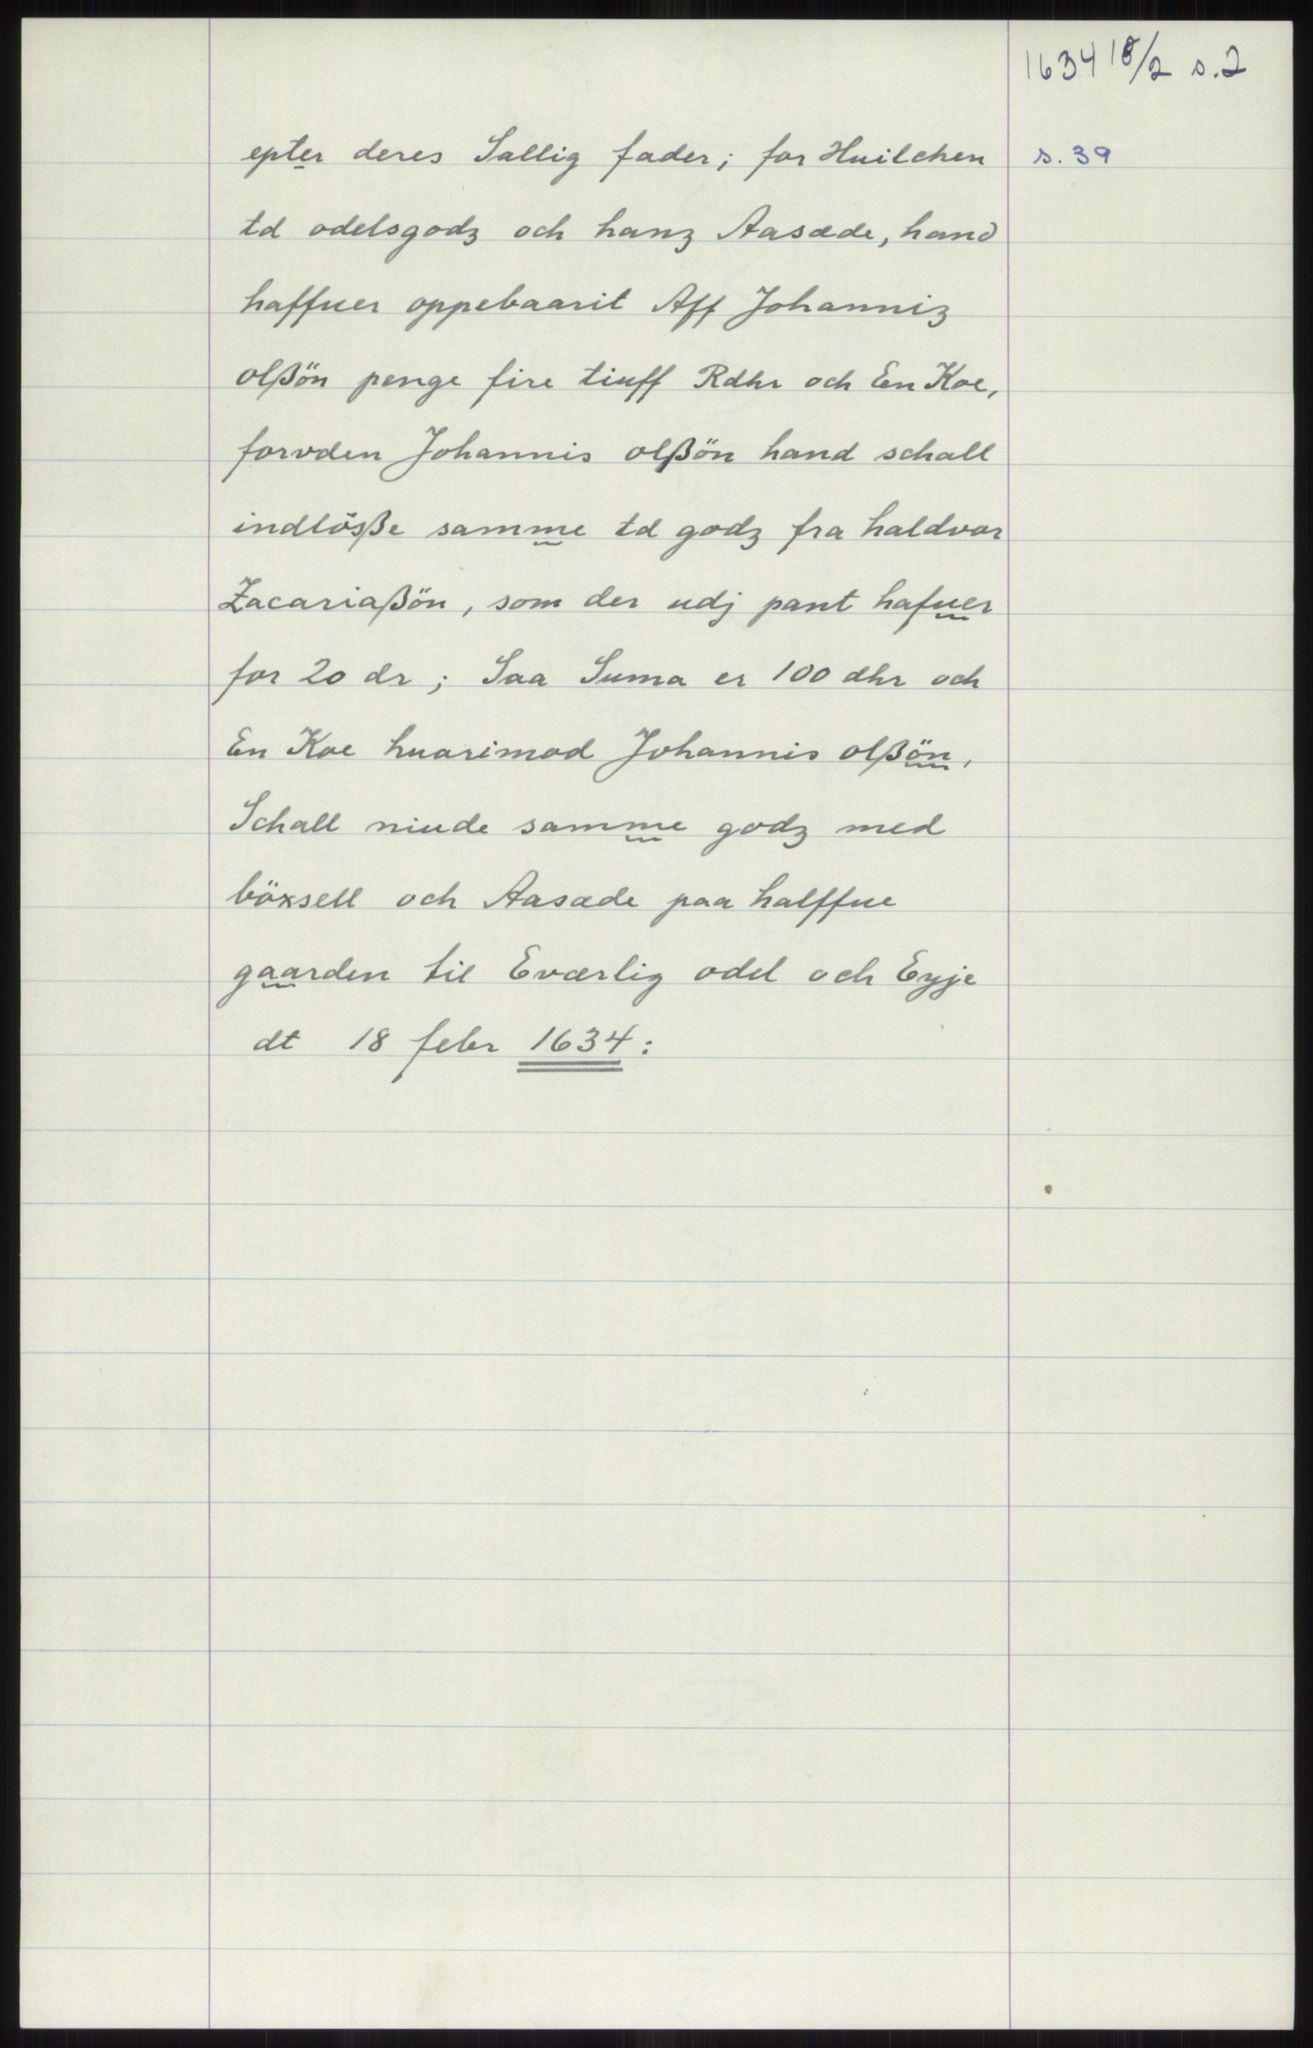 1634 18/2 s.2
epter deres Sallig fader; for Huilchen s. 39
td odelsgodz och hanz Aasæde, hand
haffuer oppebaarit Aff Johanniz
olßön penge fire tiuff Rdhr och En Koe,
forvden Johannis olßön hand schall
indlösße samme td godz fra haldvor
Zacariaßön, som der udj pant hafuer
for 20 dr; Saa Suma er 100 dhr och
En Koe huarimod Johannis olßön,
Schall niude samme godz med
böxsell och Aasæde paa halffue
gaarden til Eværlig odel och Eyje
dt 18 febr 1634: